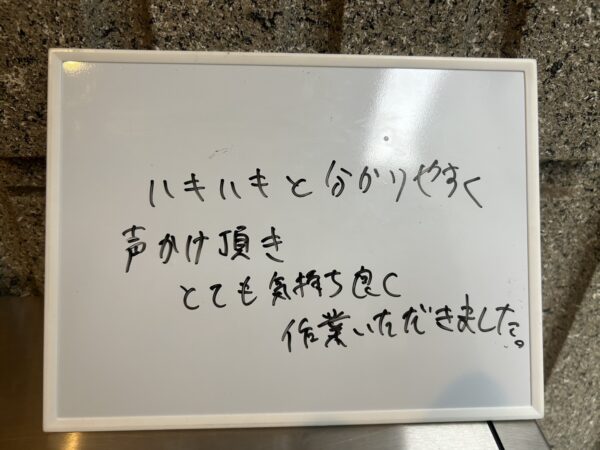 ハキハキと分かりやすく
声かけ頂き
とても気持ち良く
作業いただきました。